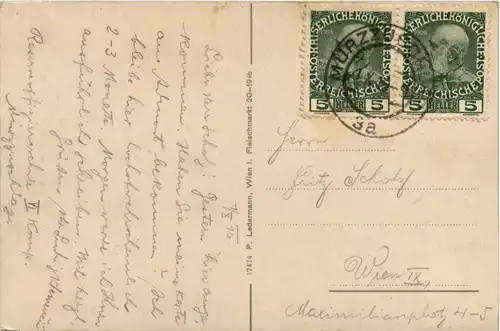 KAISERLICHE KÖNIGLICHE
ÖSTERREICHISCHE POST
5 HELLER 5
KAISERLICHE KÖNIGLICHE
ÖSTERREICHISCHE POST
5 HELLER 5
MÜRZZUSCHLAG
3a
17474 P. Ledermann, Wien I. Fleischmarkt 20-1916
Herrn
Fritz Schatz
Wien IX,
Maximilianplatz 4-5
Gestern hier ange-
kommen. Haben Sie meine Karte
bekommen? Ich
bleibe hier wahrscheinlich
2-3 Monate. Morgen werde ich Ihnen
ausführlich schreiben. Mit herzl.
II Komp.
Mürzzuschlag.